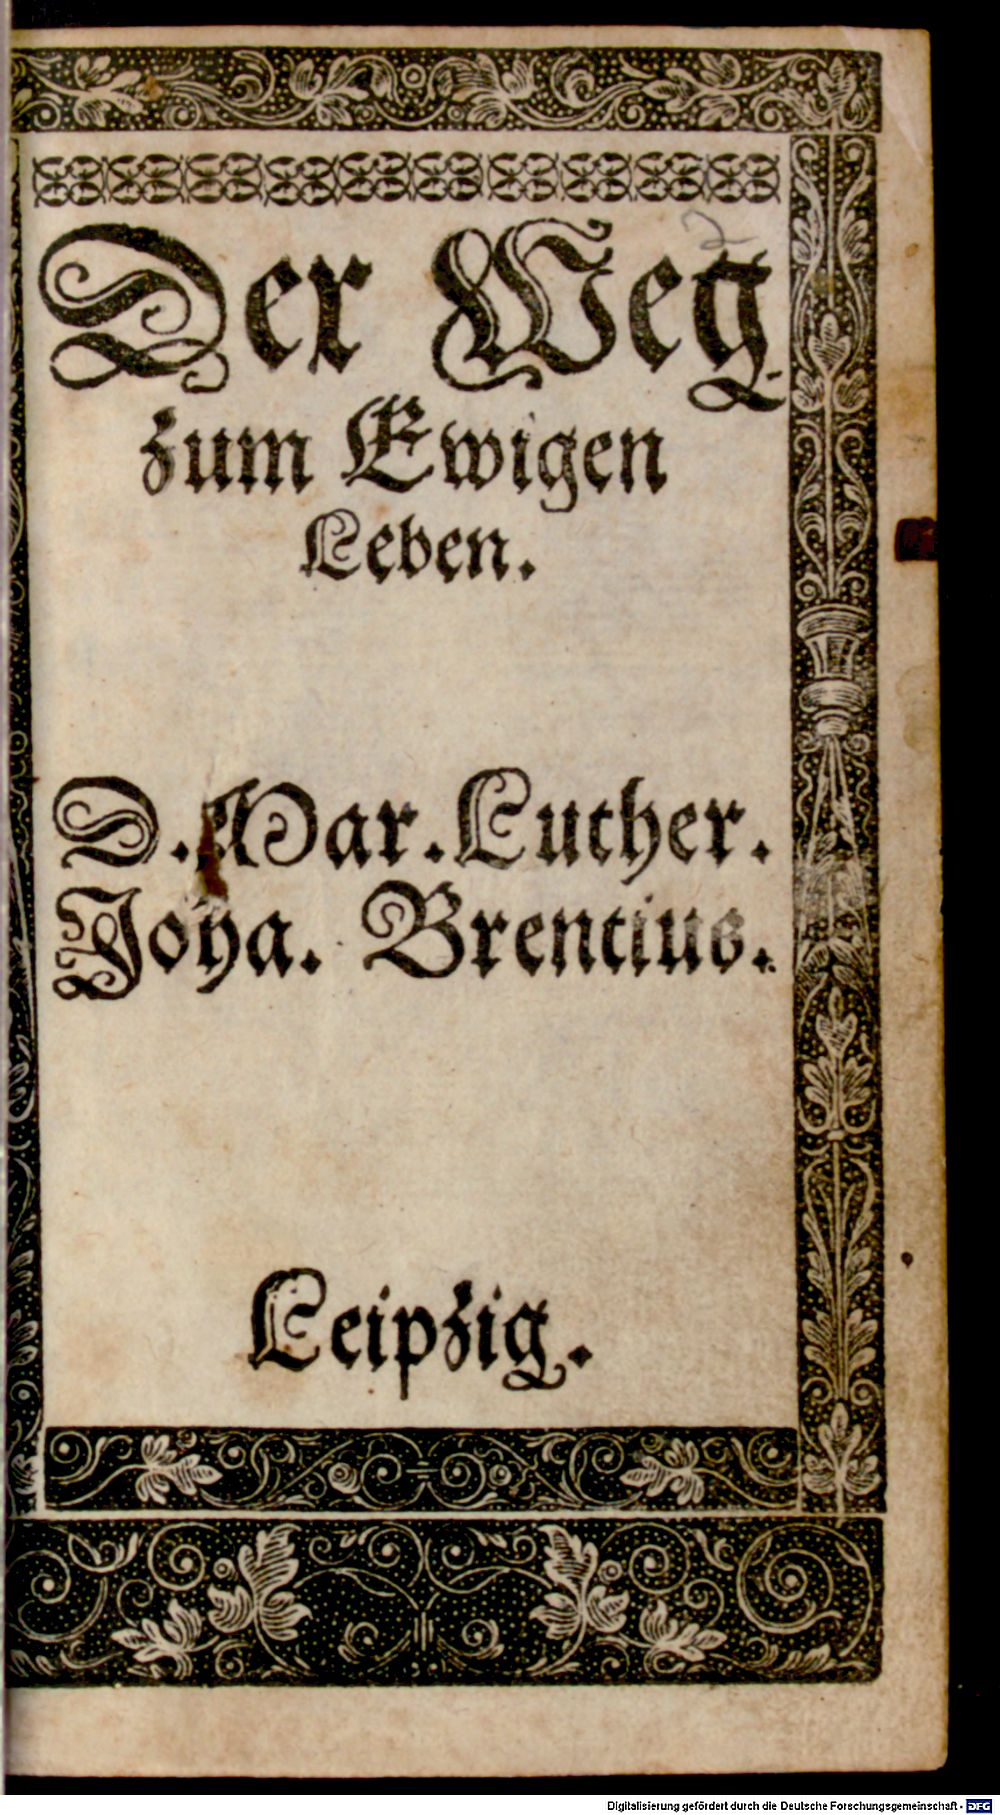 Der Weg
zum Ewigen
Leben.
D. Mar. Luther.
Joha. Brentius.
Leipzig.
Digitalisierung gefördert durch die Deutsche Forschungsgemeinschaft - DFG